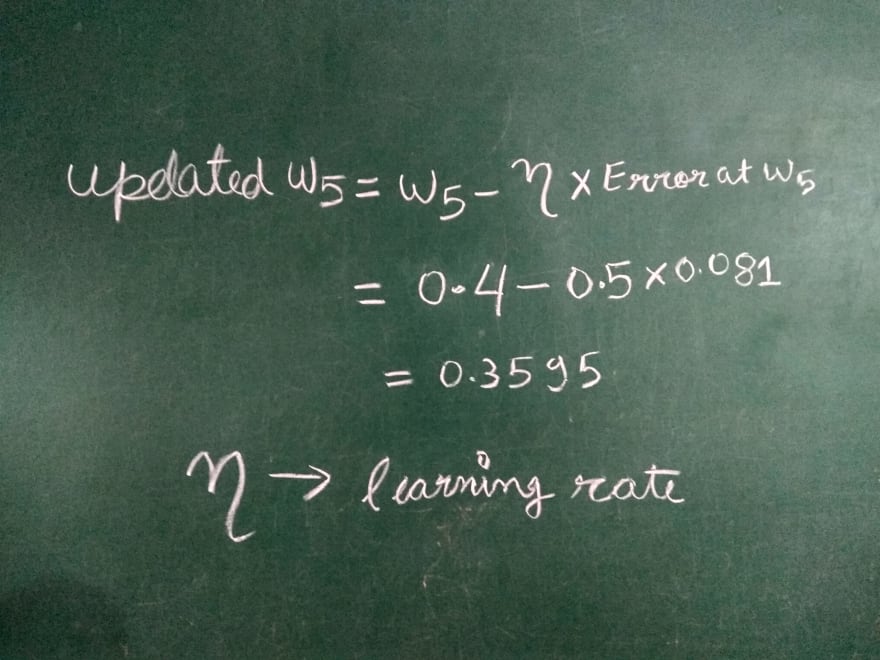 updated w5 = w5 - η x Error at w5
= 0.4 - 0.5 x 0.081
= 0.3595
η → learning rate